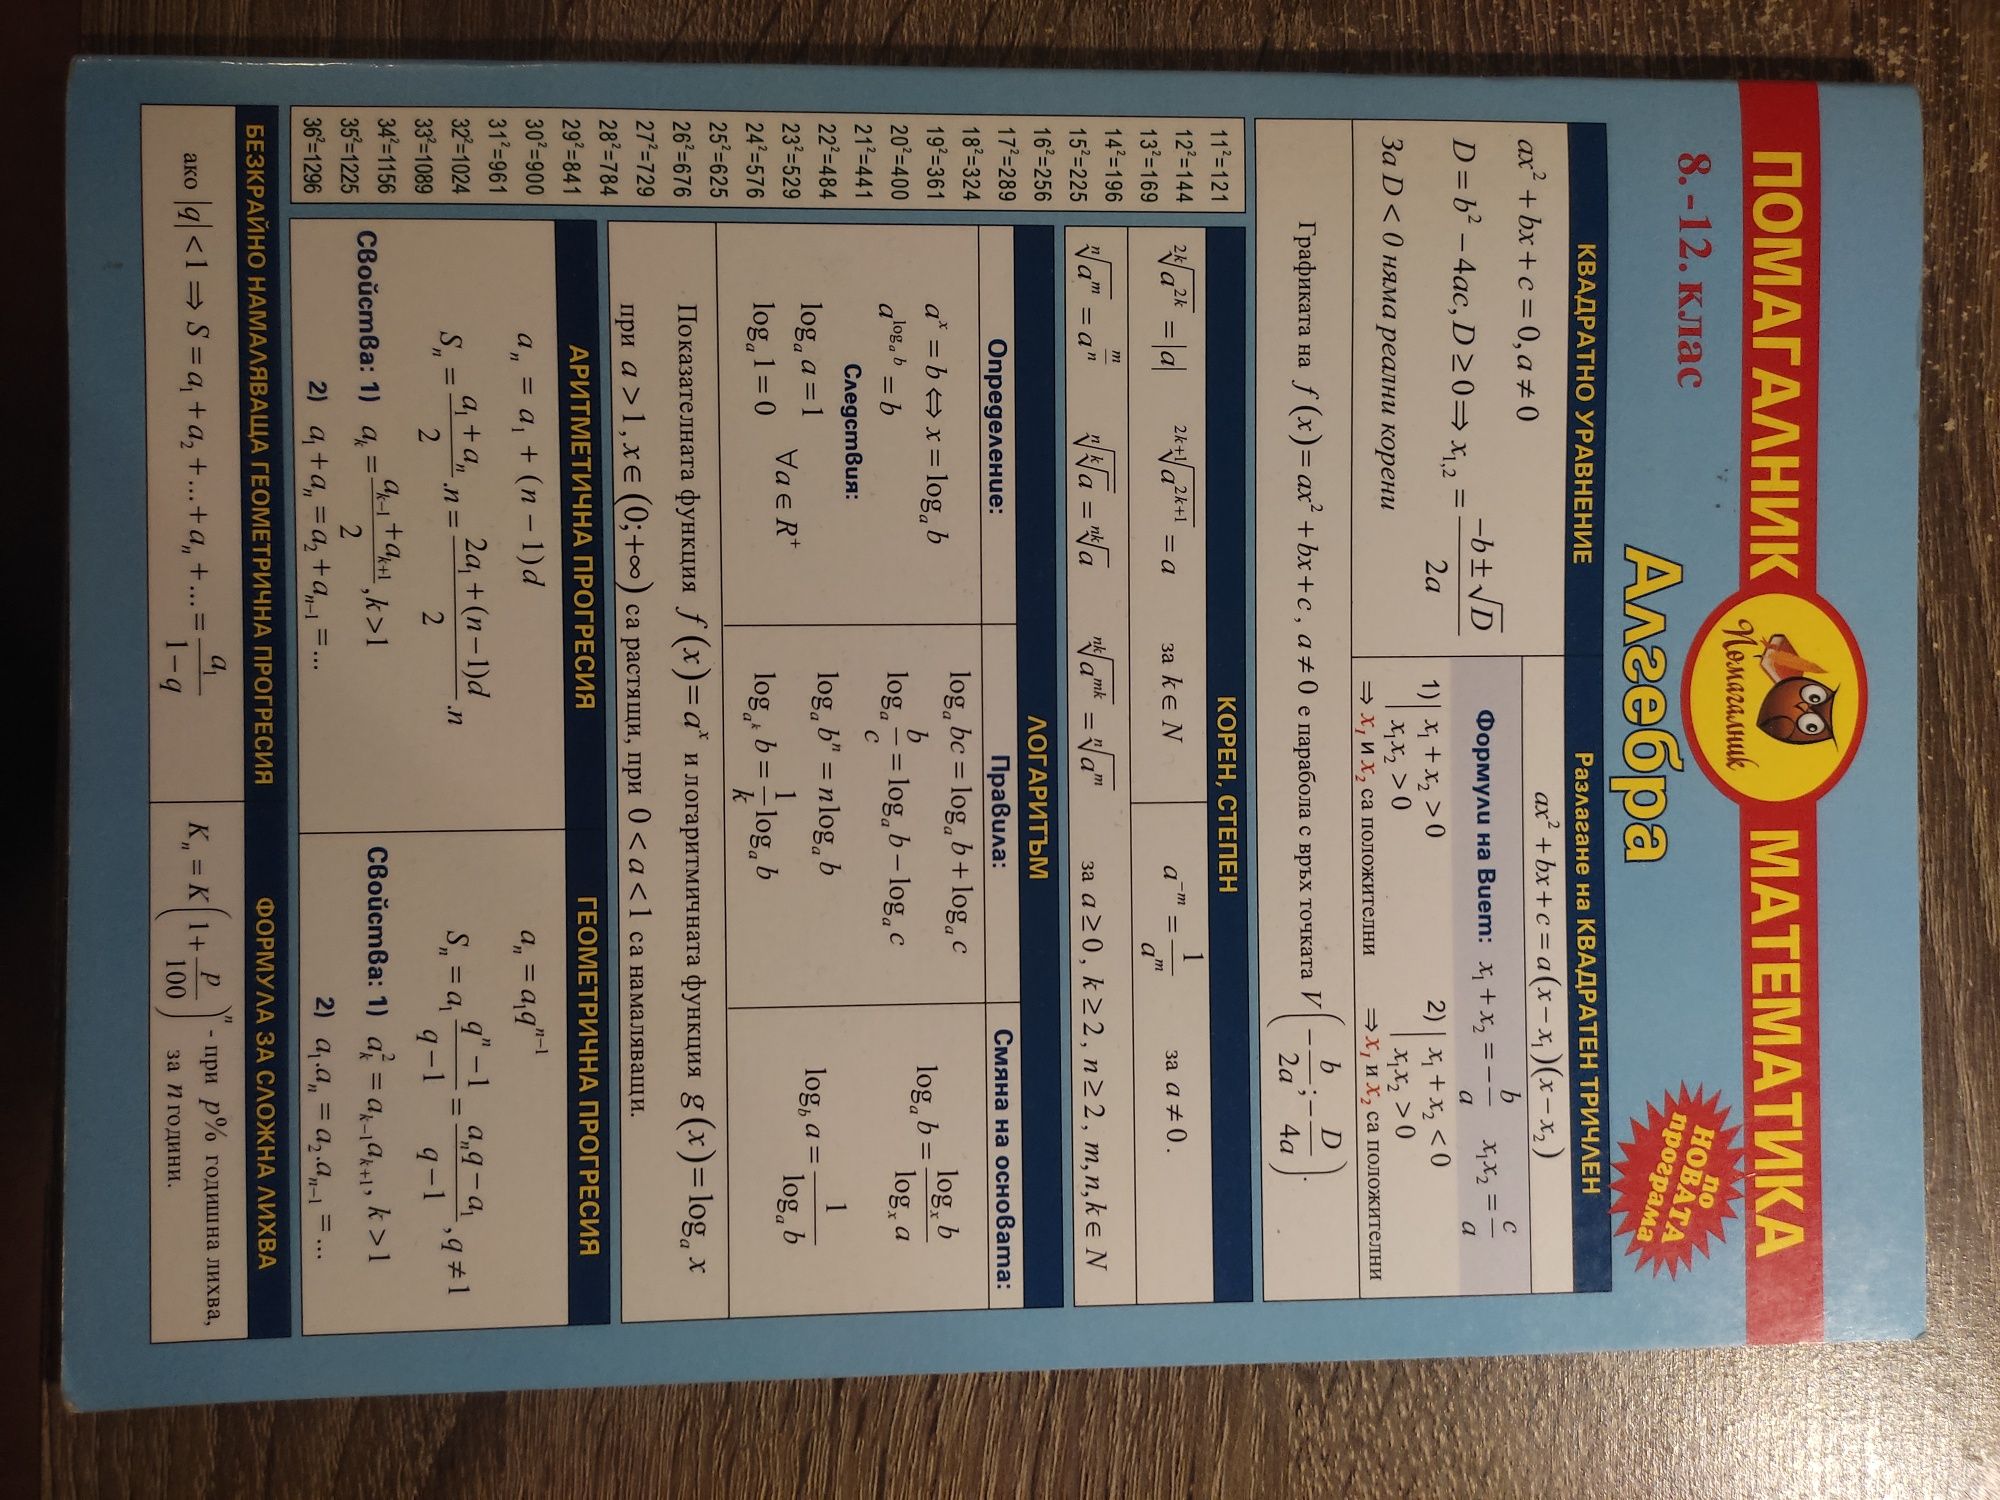 ПОМАГАЛНИК МАТЕМАТИКА
Помагалник
8.-12. клас
Алгебра
по
НОВАТА
програма
КВАДРАТНО УРАВНЕНИЕ
Разлагане на КВАДРАТЕН ТРИЧЛЕН
ax² + bx + c = 0, a ≠ 0
D = b² − 4ac, D ≥ 0 ⇒ x₁,₂ = (−b ± √D) / 2a
За D < 0 няма реални корени
ax² + bx + c = a(x − x₁)(x − x₂)
Формули на Виет: x₁ + x₂ = −b/a x₁x₂ = c/a
1) | x₁ + x₂ > 0 2) | x₁ + x₂ < 0
| x₁x₂ > 0 | x₁x₂ > 0
⇒ x₁ и x₂ са положителни ⇒ x₁ и x₂ са положителни
Графиката на f(x) = ax² + bx + c, a ≠ 0 е парабола с връх точката V(−b/2a; −D/4a).
11²=121
12²=144
13²=169
14²=196
15²=225
16²=256
17²=289
18²=324
19²=361
20²=400
21²=441
22²=484
23²=529
24²=576
25²=625
26²=676
27²=729
28²=784
29²=841
30²=900
31²=961
32²=1024
33²=1089
34²=1156
35²=1225
36²=1296
КОРЕН, СТЕПЕН
²ᵏ√a²ᵏ = |a| ²ᵏ⁺¹√a²ᵏ⁺¹ = a за k ∈ N a⁻ᵐ = 1/aᵐ за a ≠ 0.
ⁿ√aᵐ = a^(m/n) ⁿ√ᵏ√a = ⁿᵏ√a ⁿᵏ√aᵐᵏ = ⁿ√aᵐ за a ≥ 0, k ≥ 2, n ≥ 2, m, n, k ∈ N
ЛОГАРИТЪМ
Определение:
aˣ = b ⇔ x = logₐ b
a^(logₐ b) = b
Следствия:
logₐ a = 1
logₐ 1 = 0 ∀a ∈ R⁺
Правила:
logₐ bc = logₐ b + logₐ c
logₐ b/c = logₐ b − logₐ c
logₐ bⁿ = n logₐ b
log_(aᵏ) b = 1/k logₐ b
Смяна на основата:
logₐ b = logₓ b / logₓ a
log_b a = 1 / logₐ b
Показателната функция f(x) = aˣ и логаритмичната функция g(x) = logₐ x
при a > 1, x ∈ (0; +∞) са растящи, при 0 < a < 1 са намаляващи.
АРИТМЕТИЧНА ПРОГРЕСИЯ
aₙ = a₁ + (n − 1)d
Sₙ = (a₁ + aₙ)/2 .n = (2a₁ + (n − 1)d)/2 .n
Свойства: 1) aₖ = (aₖ₋₁ + aₖ₊₁)/2, k > 1
2) a₁ + aₙ = a₂ + aₙ₋₁ = ...
ГЕОМЕТРИЧНА ПРОГРЕСИЯ
aₙ = a₁qⁿ⁻¹
Sₙ = a₁ (qⁿ − 1)/(q − 1) = (aₙq − a₁)/(q − 1), q ≠ 1
Свойства: 1) aₖ² = aₖ₋₁aₖ₊₁, k > 1
2) a₁.aₙ = a₂.aₙ₋₁ = ...
БЕЗКРАЙНО НАМАЛЯВАЩА ГЕОМЕТРИЧНА ПРОГРЕСИЯ
ако |q| < 1 ⇒ S = a₁ + a₂ + ... + aₙ + ... = a₁/(1 − q)
ФОРМУЛА ЗА СЛОЖНА ЛИХВА
Kₙ = K(1 + p/100)ⁿ - при p% годишна лихва,
за n години.